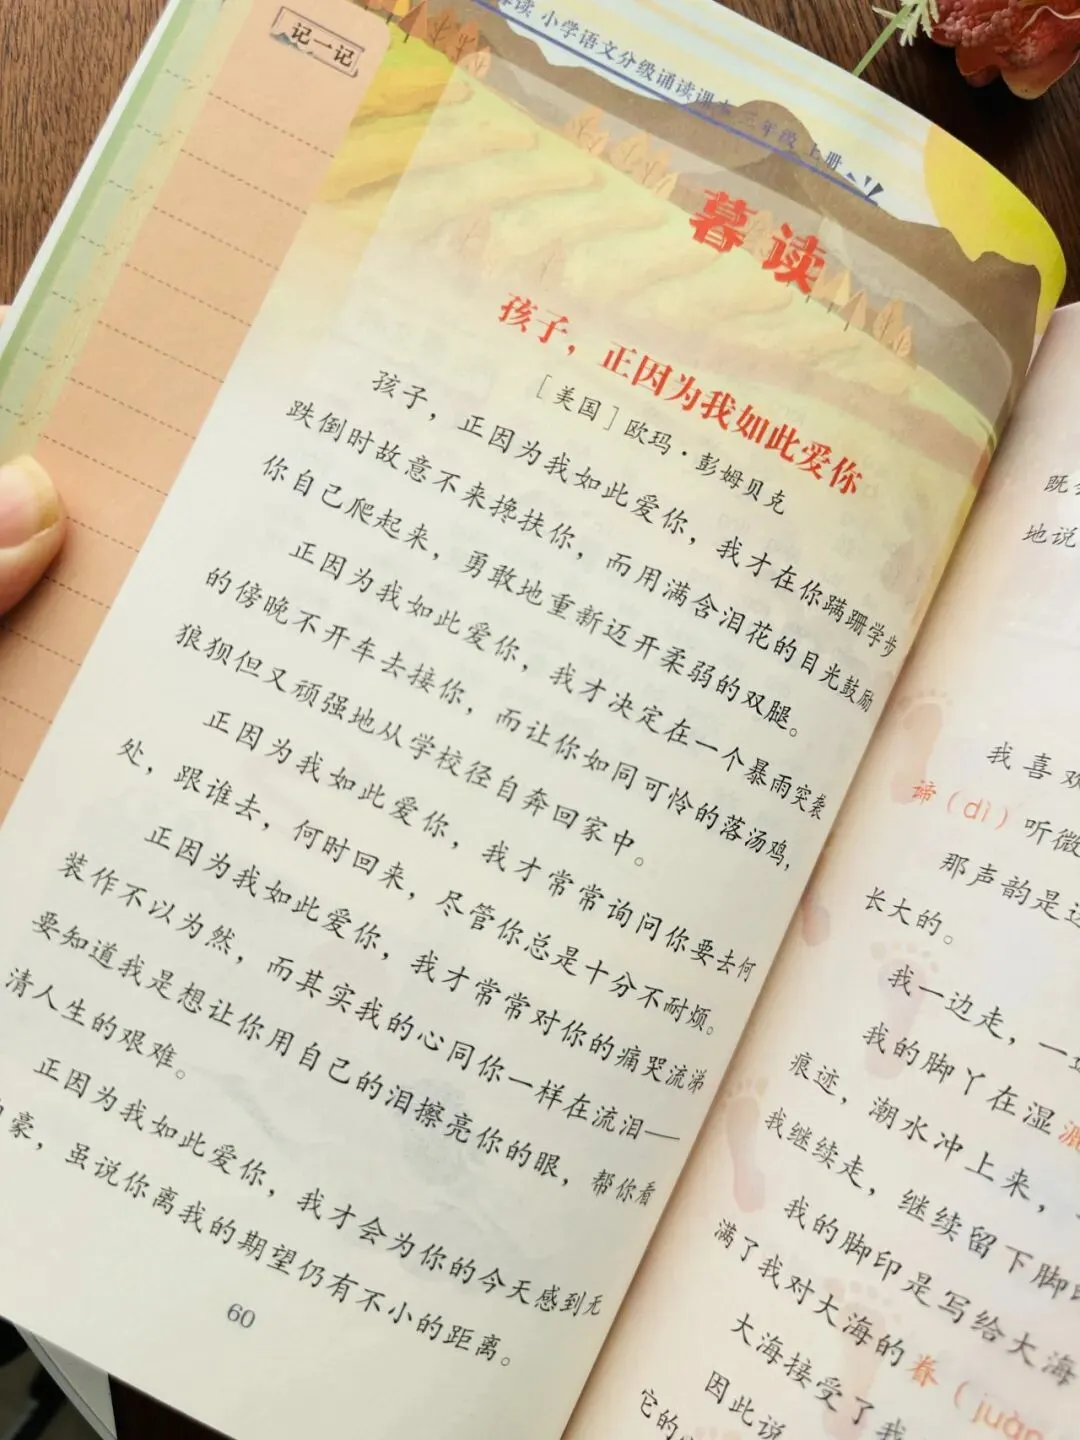 记一记
诵读 小学语文分级诵读课本 三年级 上册
暮读
孩子，正因为我如此爱你
［美国］欧玛·彭姆贝克
孩子，正因为我如此爱你，我才在你蹒跚学步
跌倒时故意不来搀扶你，而用满含泪花的目光鼓励
你自己爬起来，勇敢地重新迈开柔弱的双腿。
正因为我如此爱你，我才决定在一个暴雨突袭
的傍晚不开车去接你，而让你如同可怜的落汤鸡，
狼狈但又顽强地从学校径自奔回家中。
正因为我如此爱你，我才常常询问你要去何
处，跟谁去，何时回来，尽管你总是十分不耐烦。
正因为我如此爱你，我才常常对你的痛哭流涕
装作不以为然，而其实我的心同你一样在流泪——
要知道我是想让你用自己的泪擦亮你的眼，帮你看
清人生的艰难。
正因为我如此爱你，我才会为你的今天感到无
豪，虽说你离我的期望仍有不小的距离。
60
既
地说
我喜欢
谛（dì）听微
那声韵是这
长大的。
我一边走，一
我的脚丫在湿
痕迹，潮水冲上来，
我继续走，继续留下脚
我的脚印是写给大海
满了我对大海的眷（juàn
大海接受了我
因此说
它的